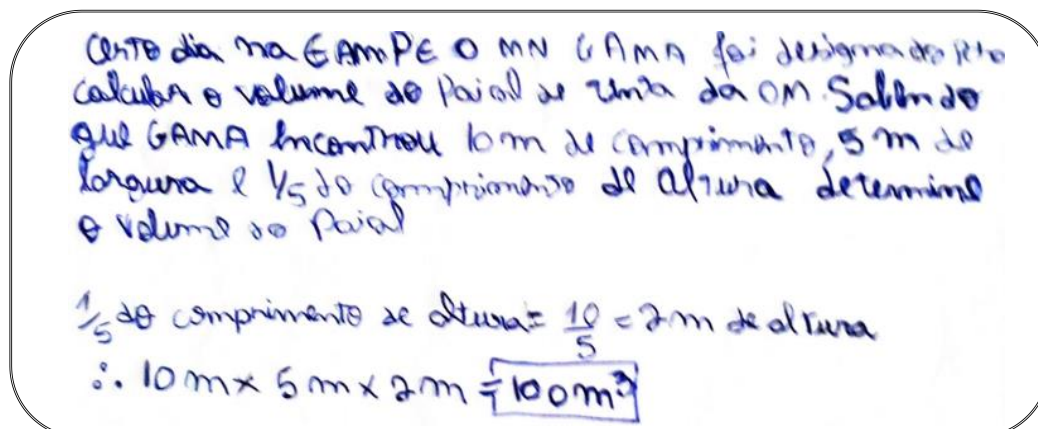 Certo dia na EAMPE O MN GAMA foi designado
calcular o volume do Paiol de tinta da OM. Sabendo
que GAMA encontrou 10 m de comprimento, 5 m de
largura e 1/5 do comprimento de altura determine
o volume do Paiol
1/5 do comprimento de altura = 10/5 = 2 m de altura
∴ 10 m x 5 m x 2 m = 100 m³